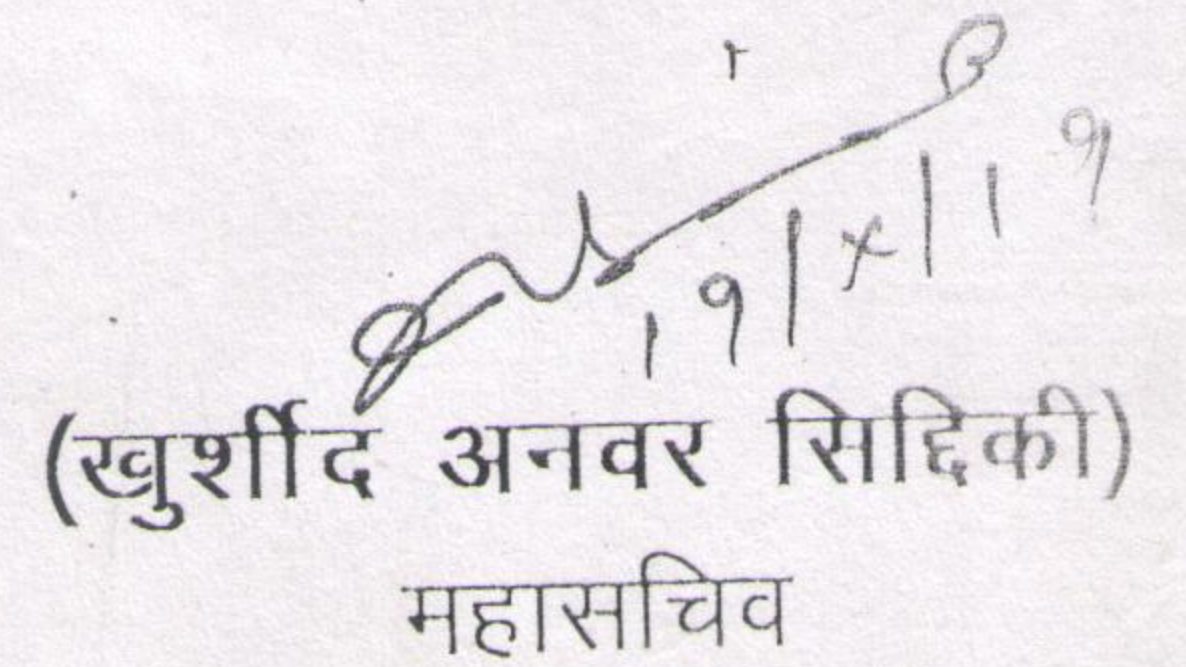 19/x/19
(खुर्शीद अनवर सिद्दिकी)
महासचिव